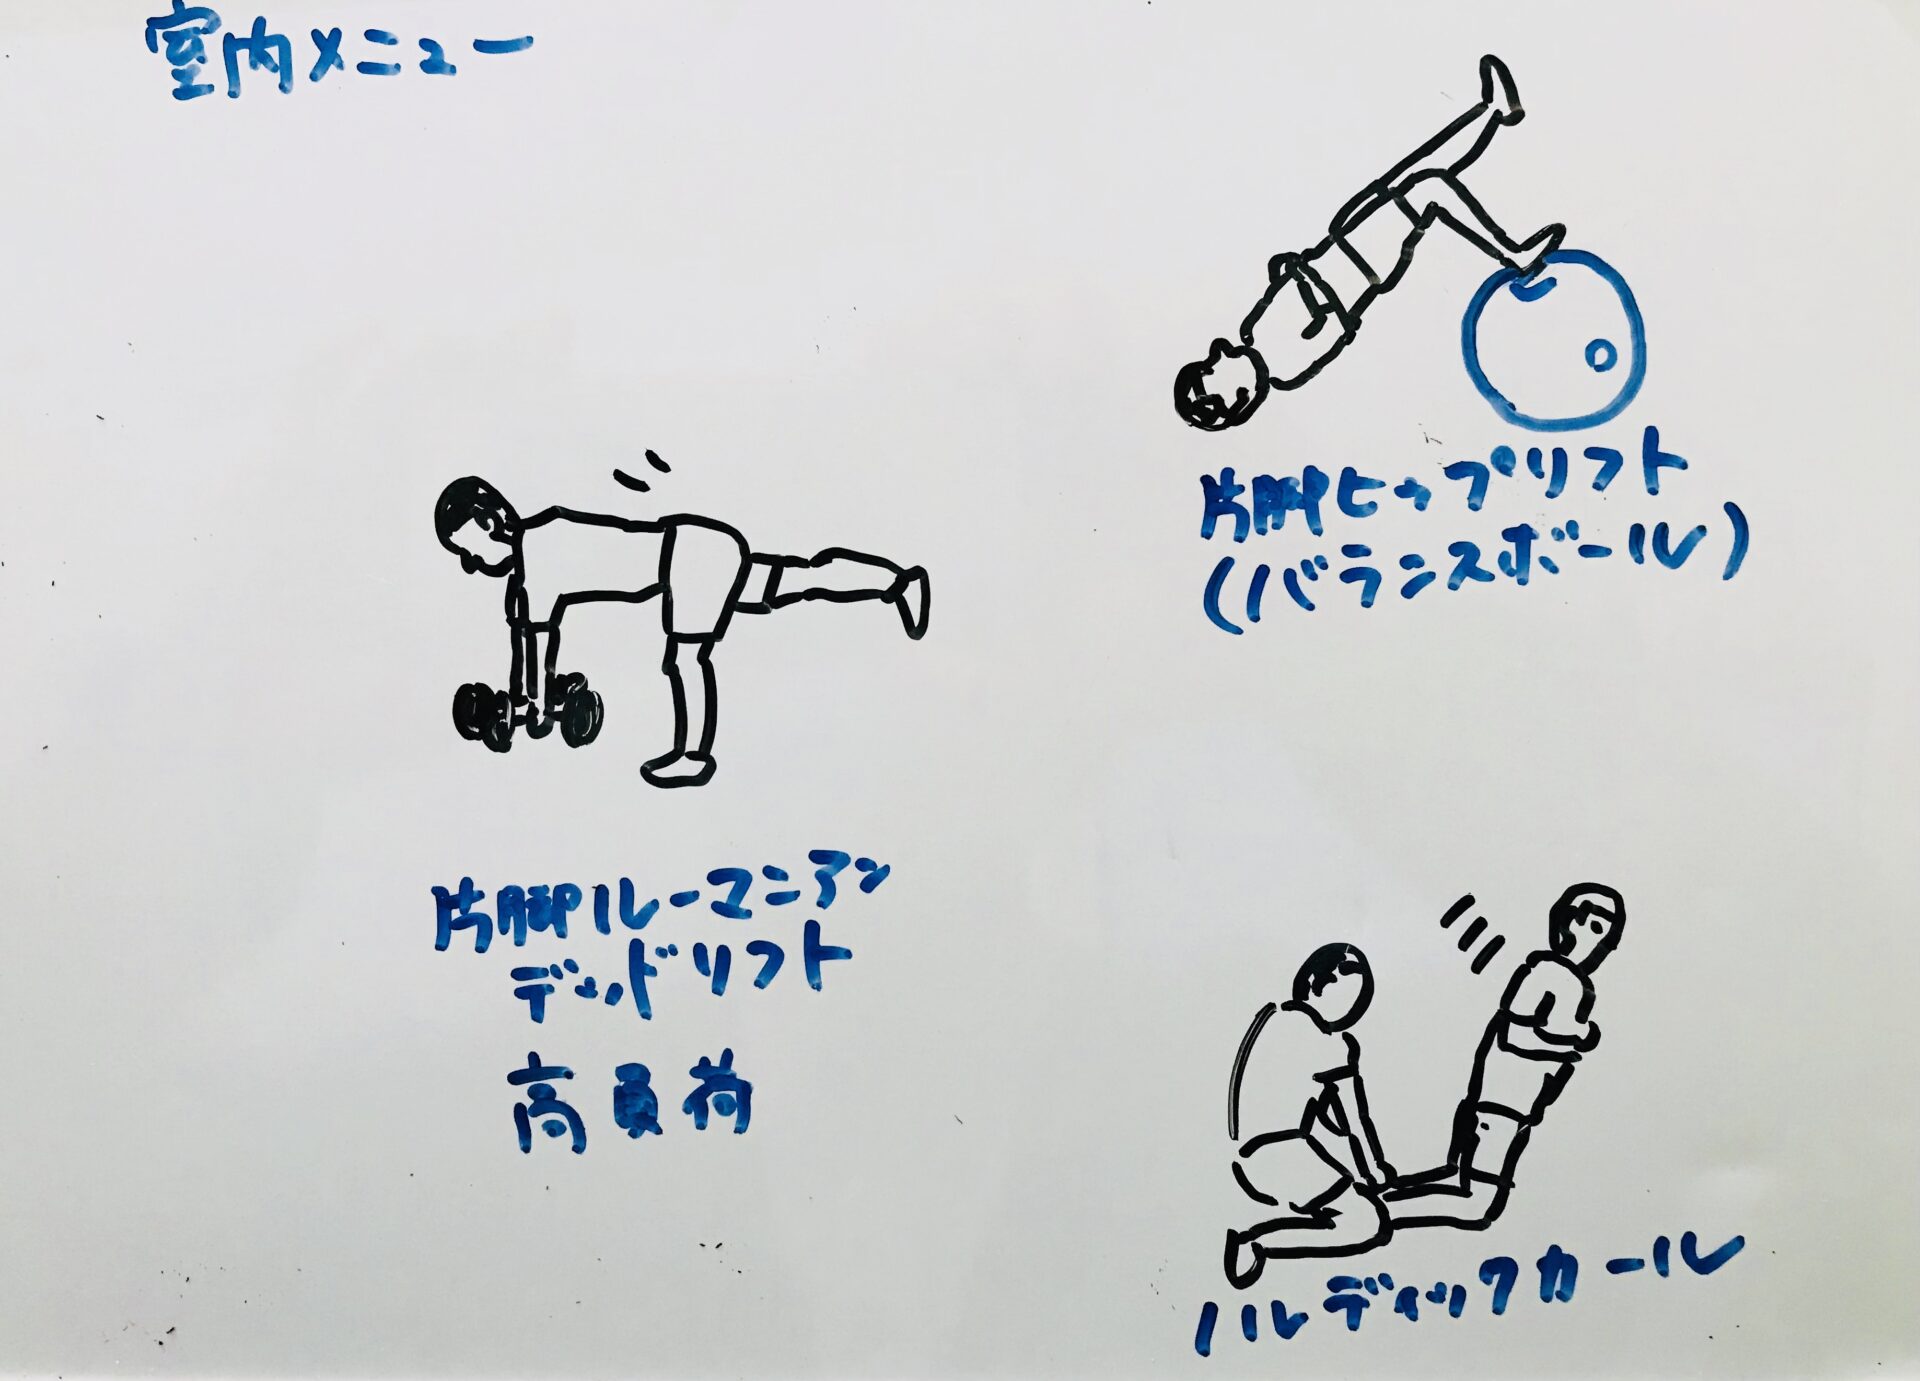 室内メニュー
片脚ヒップリフト
(バランスボール)
片脚ルーマニアン
デッドリフト
高負荷
ノルディックカール